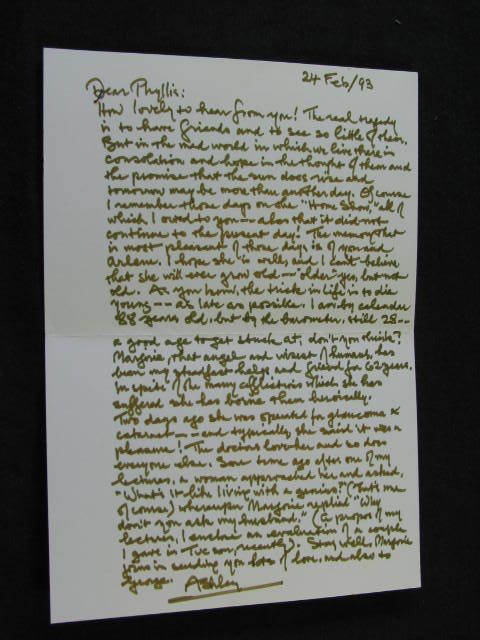 24 Feb/93
Dear Phyllis:
How lovely to hear from you! The real tragedy
is to have friends and to see so little of them.
But in the mad world in which we live there is
consolation and hope in the thought of them and
the promise that the sun does rise and
tomorrow may be more than another day. Of course
I remember those days on the "Home Show," all of
which I owed to you -- alas that it did not
continue to the present day! The memory that
is most pleasant of those days is of you and
Arlene. I hope she is well, and I can't believe
that she will ever grow old -- "older" yes, but not
old. As you know, the trick in life is to die
young -- as late as possible. I am by calendar
88 years old, but by the barometer, still 28 --
a good age to get stuck at, don't you think?
Marjorie, that angel and wisest of humans, has
been my steadfast help and friend for 62 years.
In spite of the many afflictions which she has
suffered she has borne them heroically.
Two days ago she was operated for glaucoma &
cataract -- and typically she said it was a
pleasure! The doctors love her and so does
everyone else. Some time ago after one of my
lectures, a woman approached her and asked,
"What's it like living with a genius?" (That's me
of course) whereupon Marjorie replied "Why
don't you ask my husband." (A propos of my
lectures, I enclose an evaluation of a couple
I gave in Tucson, recently). Stay well, Marjorie
joins in sending you lots of love, and also to
George. Ashley